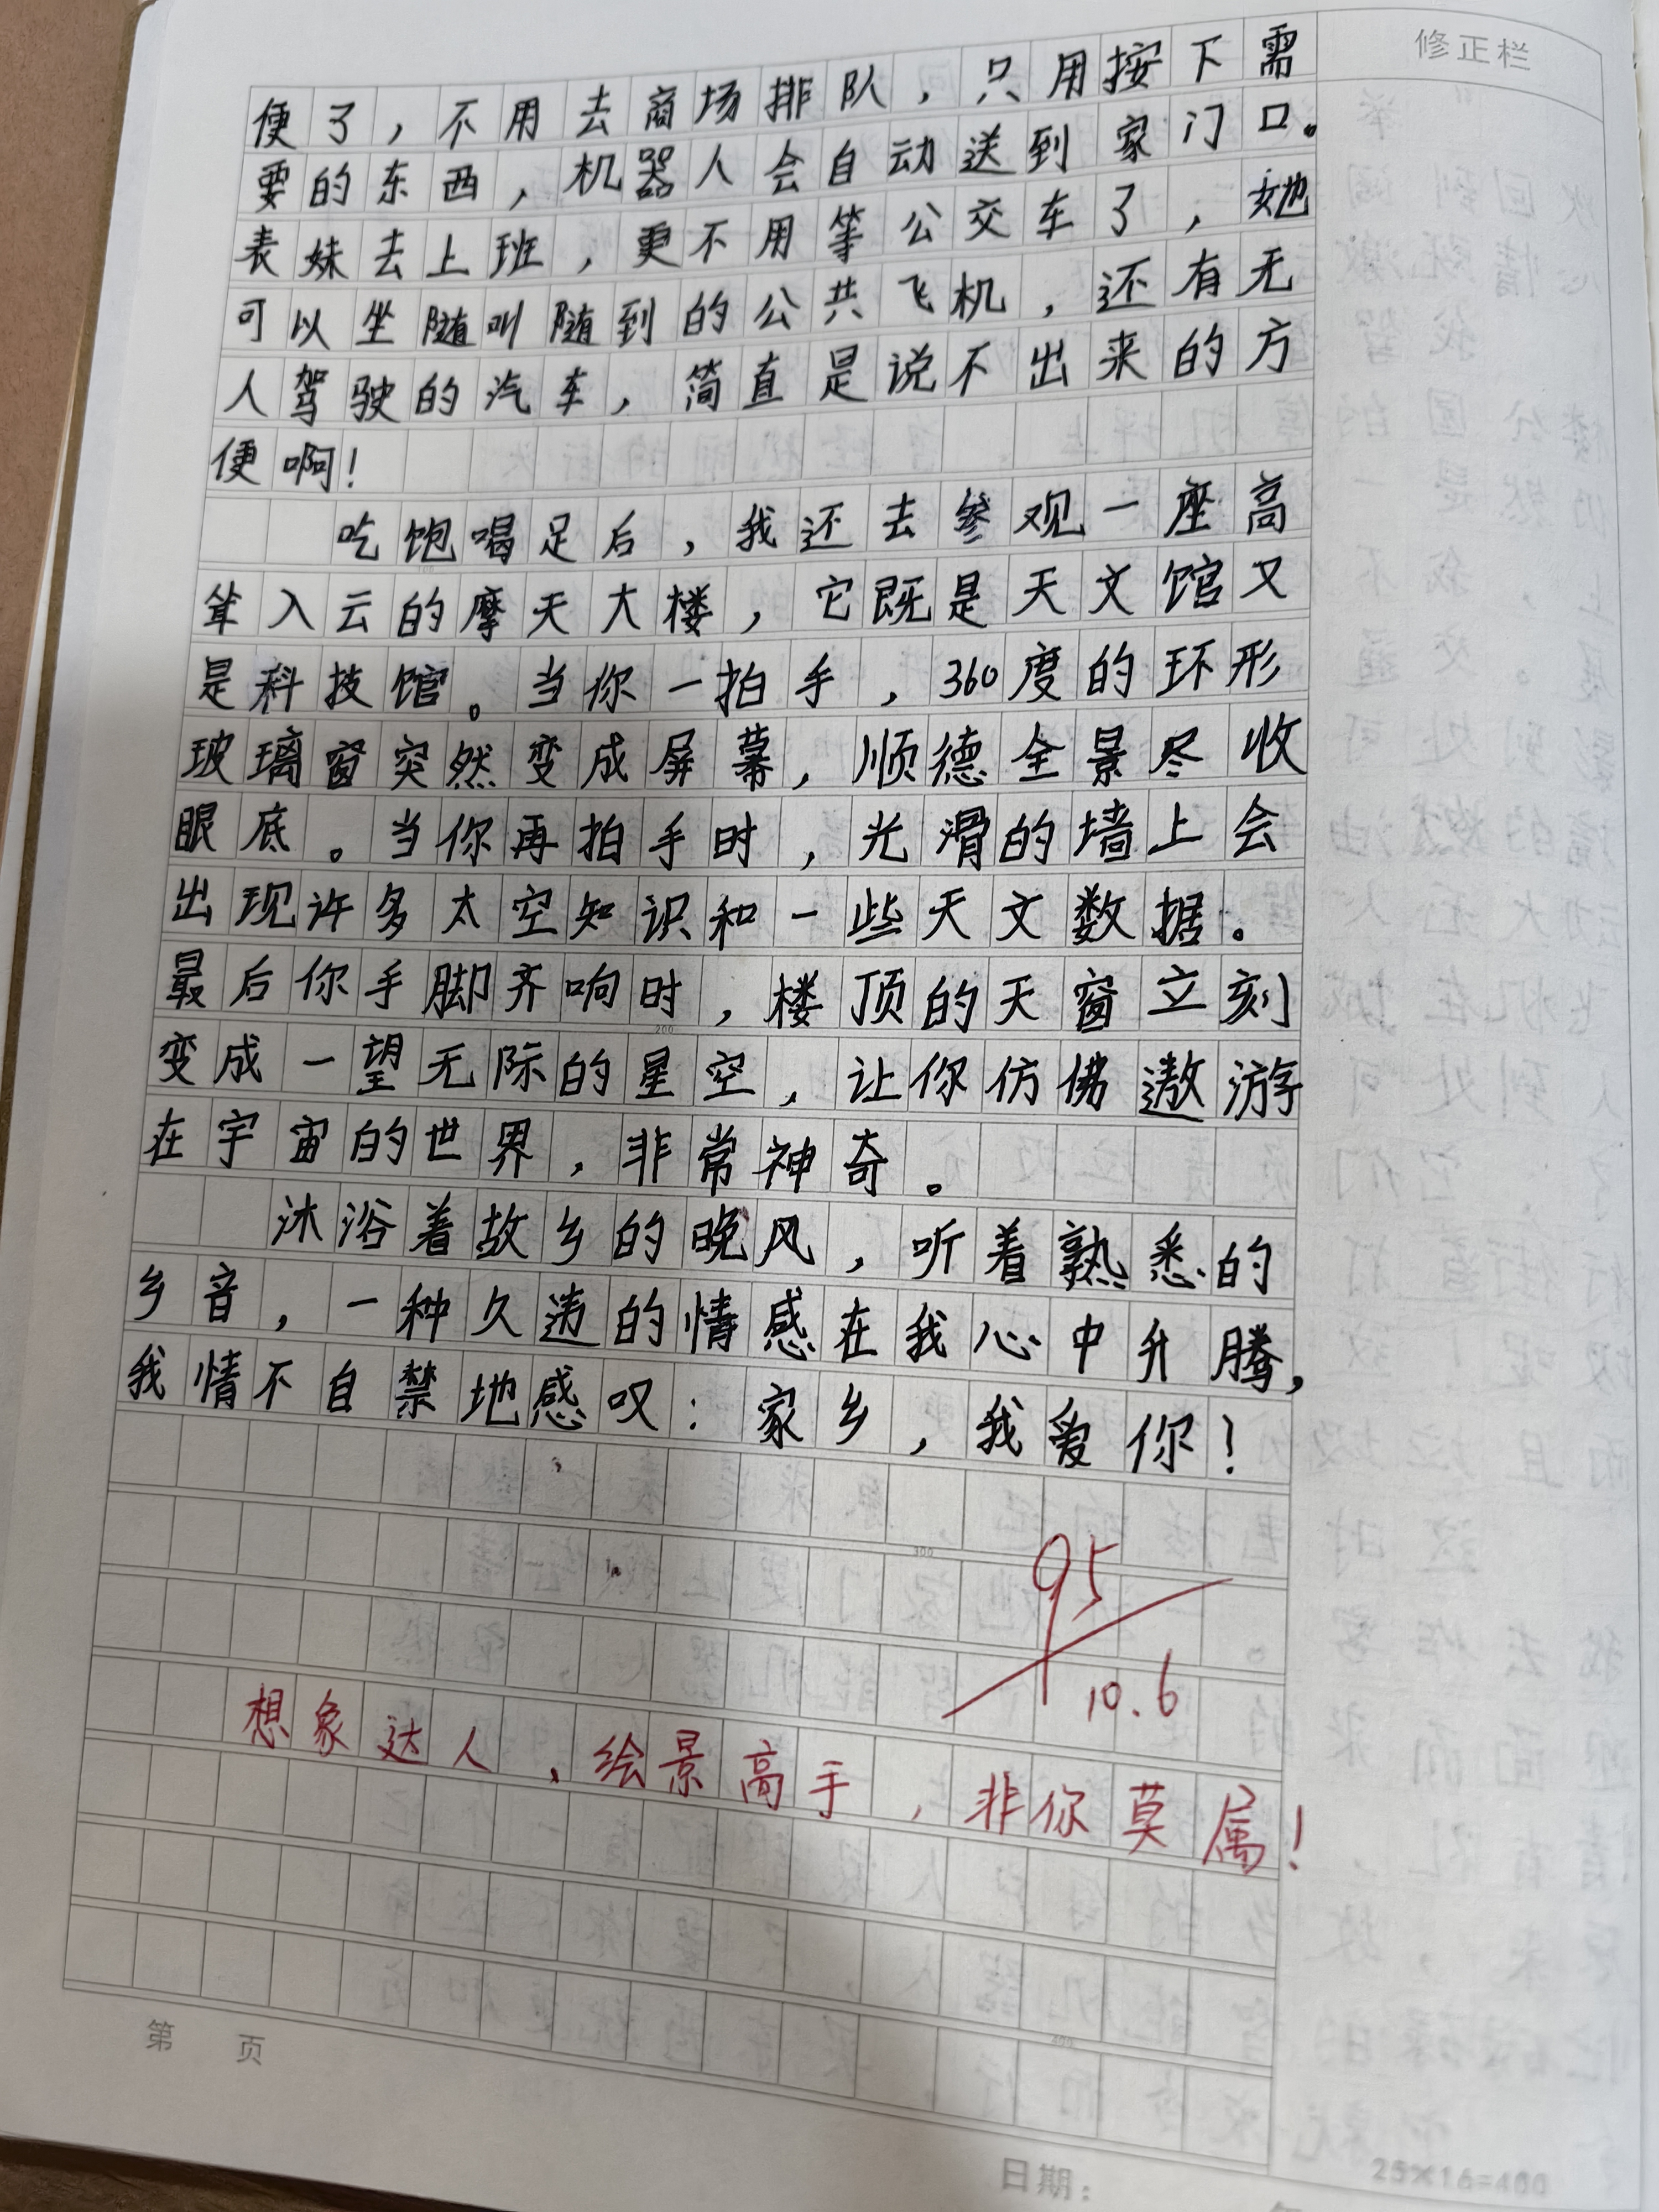 修正栏
便了，不用去商场排队，只用按下需
要的东西，机器人会自动送到家门口。
表妹去上班，更不用等公交车了，她
可以坐随叫随到的公共飞机，还有无
人驾驶的汽车，简直是说不出来的方
便啊！
吃饱喝足后，我还去参观一座高
耸入云的摩天大楼，它既是天文馆又
是科技馆。当你一拍手，360度的环形
玻璃窗突然变成屏幕，顺德全景尽收
眼底。当你再拍手时，光滑的墙上会
出现许多太空知识和一些天文数据。
最后你手脚齐响时，楼顶的天窗立刻
变成一望无际的星空，让你仿佛遨游
在宇宙的世界，非常神奇。
沐浴着故乡的晚风，听着熟悉的
乡音，一种久违的情感在我心中升腾，
我情不自禁地感叹：家乡，我爱你！
95
10.6
想象达人，绘景高手，非你莫属！
第 页
日期：
25×16=400